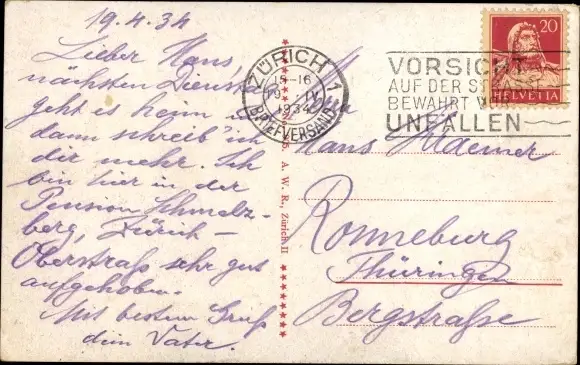 19.4.34
Lieber Hans,
nächsten Dienstag
geht es heim
dann schreib ich
dir mehr. Ich
bin hier in der
Pension Schmelz-
berg, Zürich -
Oberstraß sehr gut
aufgehoben.
Mit bestem Gruß
dein Vater.
ZÜRICH 1
15-16
19. IV.
1934
BRIEFVERSAND
VORSICHT
AUF DER
BEWAHRT
UNFÄLLEN
20
HELVETIA
A. W. R., Zürich II
Hans
Ronneburg
Thüringen
Bergstraße